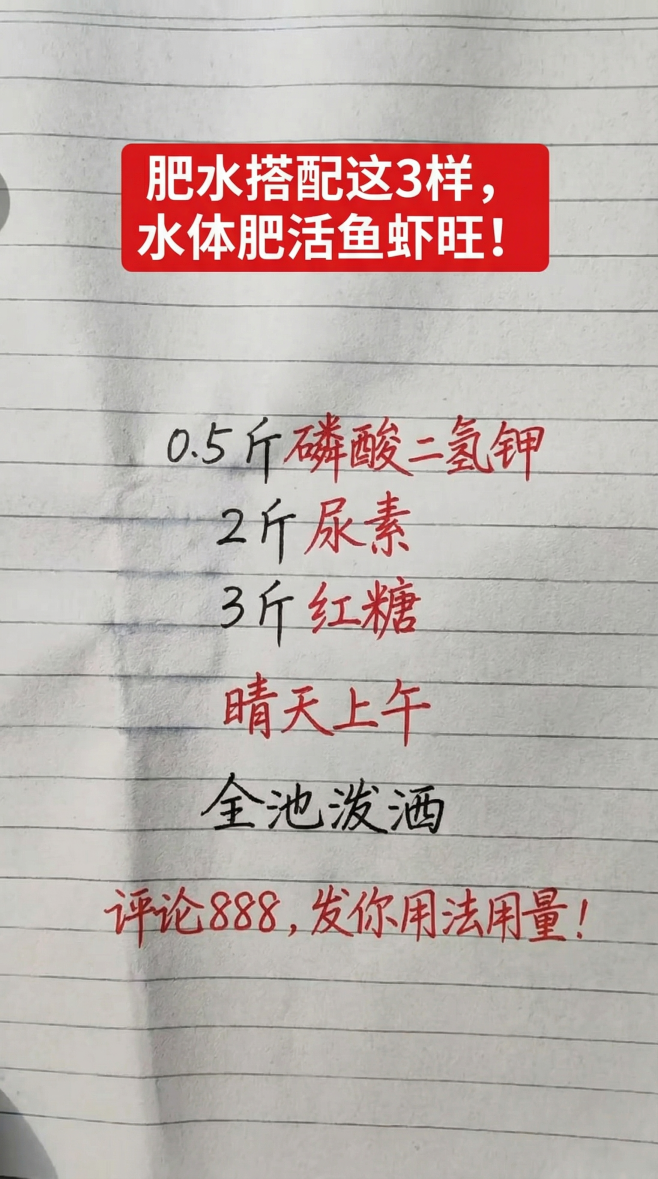 肥水搭配这3样，
水体肥活鱼虾旺！
0.5斤磷酸二氢钾
2斤尿素
3斤红糖
晴天上午
全池泼洒
评论888，发你用法用量！